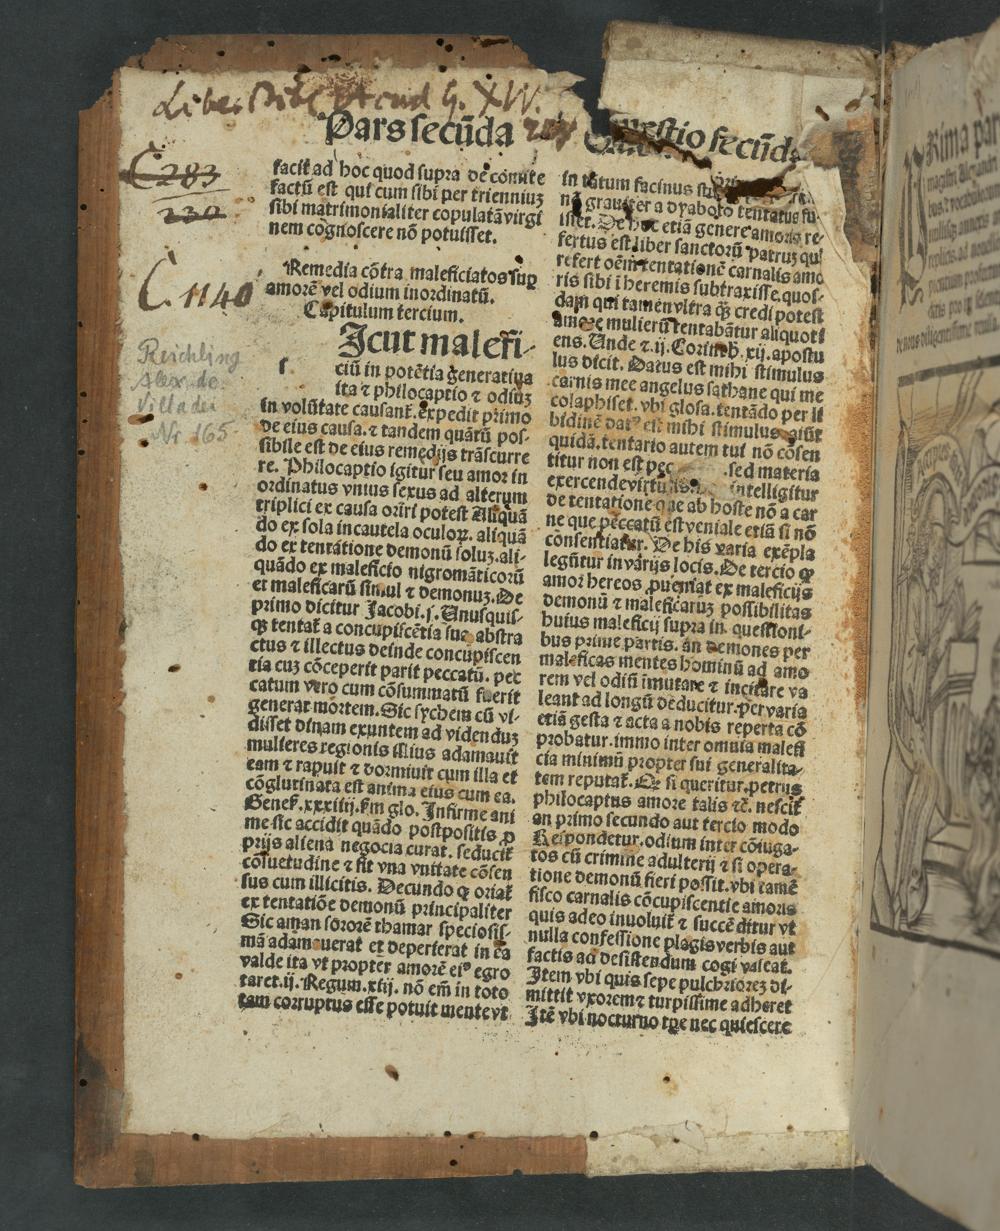 Pars secūda
Questio secūda
C 283
239
C. 1140
Reichling
Alex. de
Villadei
Nr. 165
facit ad hoc quod supra de comite
factū est qui cum sibi per trienniuz
sibi matrimonialiter copulatā virgi
nem cognoscere nō potuisset.
Remedia cōtra maleficiatos sup̱
amorē vel odium inordinatū.
Capitulum tercium.
Icut malefi-
ciū in potētia generatiua
ita ⁊ philocaptio ⁊ odiuz
in volūtate causant̄. expedit primo
de eius causa. ⁊ tandem quātū pos-
sibile est de eius remedijs trāscurre
re. Philocaptio igitur seu amor in
ordinatus vnius sexus ad alterum
triplici ex causa oriri potest Aliquā
do ex sola incautela oculoꝝ. aliquā
do ex tentatione demonū soluz. ali-
quādo ex maleficio nigromāticorū
et maleficarū simul ⁊ demonuz. De
primo dicitur Jacobi. j. Unusquis-
qꝫ tentat̄ a concupiscētia sua abstra
ctus ⁊ illectus deinde concupiscen
tia cuz cōceperit parit peccatū. pec
catum vero cum cōsummatū fuerit
generat mortem. Sic sychem cū vi-
disset dinam exuntem ad videnduz
mulieres regionis illius adamauit
eam ⁊ rapuit ⁊ dormiuit cum illa et
cōglutinata est anima eius cum ea.
Genes. xxxiiij. fm glo. Infirme ani
me sic accidit quādo postpositis ꝓ
prijs aliena negocia curat. seducit̄
cōsuetudine ⁊ fit vna vnitate cōsen
sus cum illicitis. Decundo ꝙ oriat̄
ex tentatiōe demonū principaliter
Sic aman sororē thamar speciosis-
mā adamauerat et deperierat in ea
valde ita vt propter amorē eiꝰ egro
taret. ij. Regum. xiij. nō em̄ in toto
tam corruptus esse potuit mente vt
in tātum facinus
nō grauiter a dyabolo tentatus fu-
isset. De hoc etiā genere amoris re-
fertus est liber sanctorū patruz qui
refert oēm tentationē carnalis amo
ris sibi ī heremis subtraxisse. quos-
dam qui tamen vltra qꝫ credi potest
amore mulierū tentabātur aliquoti
ens. Unde ⁊ .ij. Corinth. xij. apostu
lus dicit. Datus est mihi stimulus
carnis mee angelus sathane qui me
colaphiset. vbi glosa. tentādo per li
bidinē datꝰ est mihi stimulus aiūt
quidā. tentatio autem cui nō cōsen
titur non est pec .sed materia
exercende virtutis. intelligitur
de tentatione que ab hoste nō a car
ne que peccatū est veniale etiā si nō
consentiatur. De his varia exēpla
legūtur in varijs locis. De tercio ꝙ
amor hereos ꝓueniat ex maleficijs
demonū ⁊ maleficaruz possibilitas
huius maleficij supra in. questioni-
bus prime partis. an demones per
maleficas mentes hominū ad amo
rem vel odiū īmutare ⁊ incitare va
leant ad longū deducitur. per varia
etiā gesta ⁊ acta a nobis reperta cō
probatur. immo inter omnia malefi
cia minimū propter sui generalita-
tem reputat̄. Qꝛ si queritur. petrus
philocaptus amore talis ⁊c̄. nescit̄
an primo secundo aut tercio modo
Respondetur. odium inter cōiuga-
tos cū crimine adulterij ⁊ si opera-
tione demonū fieri possit. vbi tamē
fisco carnalis cōcupiscentie amoris
quis adeo inuoluit̄ ⁊ succēditur vt
nulla confessione plagis verbis aut
factis ad desistendum cogi valeat.
Item vbi quis sepe pulchriorez di-
mittit vxorem ⁊ turpissime adheret
Itē vbi nocturno tp̄e nec quiescere